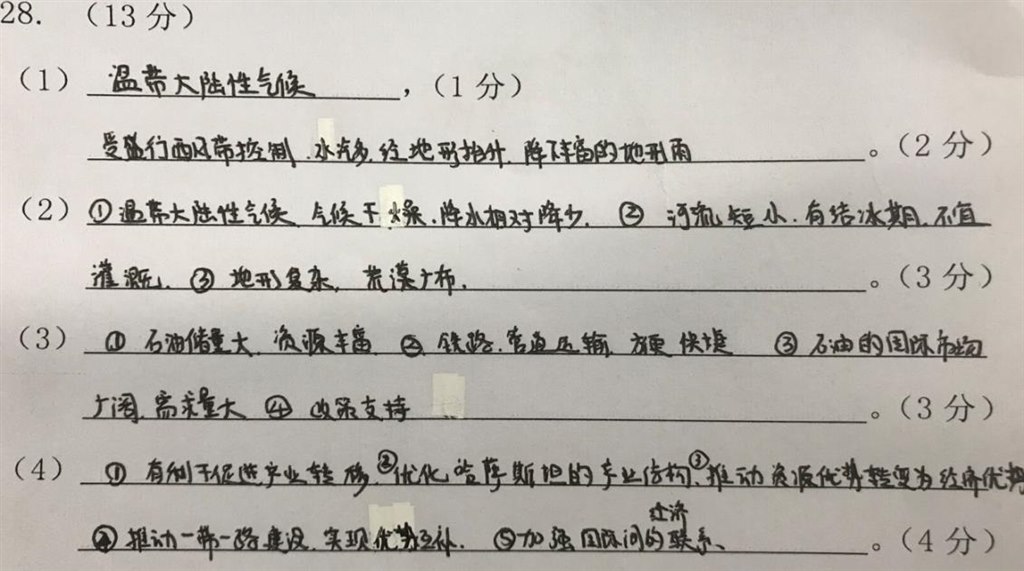 28. （13 分）
（1） 温带大陆性气候 ，（1 分）
受盛行西风带控制、水汽多,经地形抬升,降下丰富的地形雨 。（2 分）
（2） ①温带大陆性气候 气候干燥,降水相对降少. ② 河流短小.有结冰期,不宜
灌溉、③ 地形复杂, 荒漠广布, 。（3 分）
（3） ① 石油储量大,资源丰富 ② 铁路.管道运输,方便快捷 ③ 石油的国际市场
广阔,需求量大 ④ 政策支持 。（3 分）
（4） ① 有利于促进产业转移、②优化哈萨斯坦的产业结构、③推动资源优势转变为经济优势
④ 推动一带一路建设,实现优势互补. ⑤加强国际间的经济联系、 。（4 分）